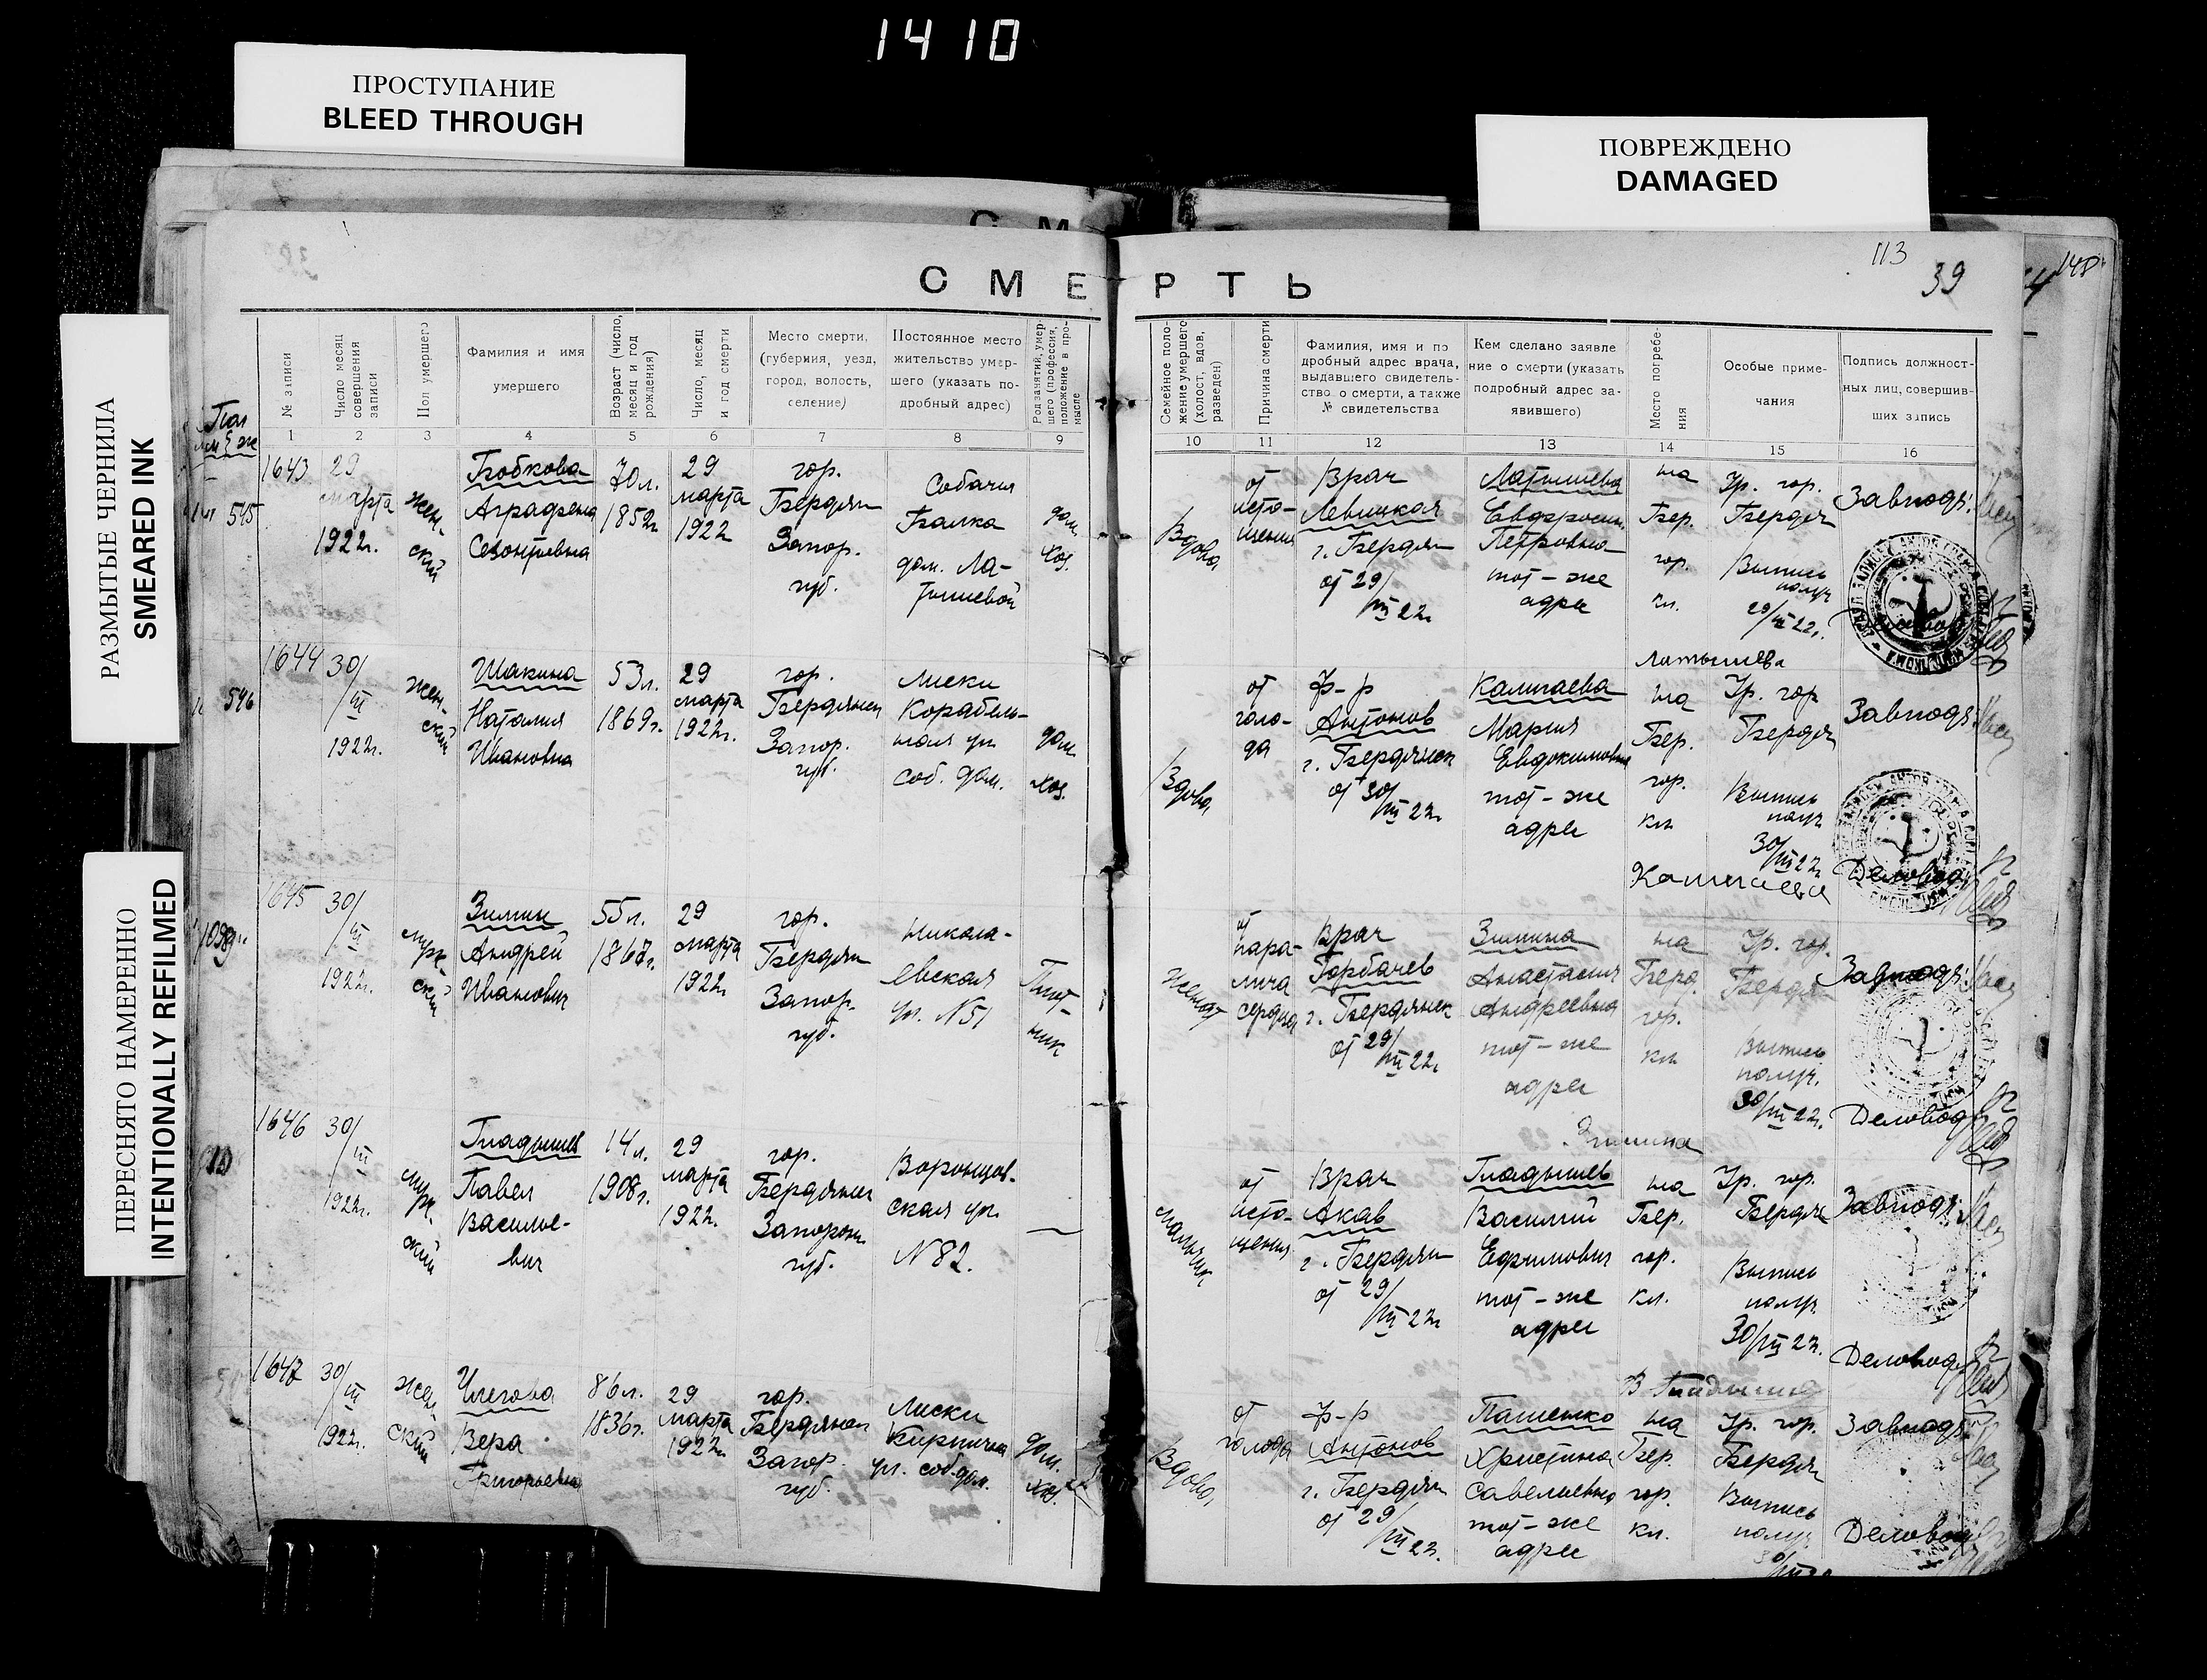 1410
ПРОСТУПАНИЕ
BLEED THROUGH
ПОВРЕЖДЕНО
DAMAGED
РАЗМЫТЫЕ ЧЕРНИЛА
SMEARED INK
ПЕРЕСНЯТО НАМЕРЕННО
INTENTIONALLY REFILMED
СМЕРТЬ
113
39
148
Пол
№ записи
Число месяц
совершения
записи
Пол умершего
Фамилия и имя
умершего
Возраст (число,
месяц и год
рождения)
Число, месяц
и год смерти
Место смерти,
(губерния, уезд,
город, волость,
селение)
Постоянное место
жительство умер-
шего (указать по-
дробный адрес)
Род занятий, умер-
шего (профессия,
положение в про-
мысле
Семейное поло-
жение умершего
(холост, вдов,
разведен)
Причина смерти
Фамилия, имя и по
дробный адрес врача,
выдавшего свидетель-
ство о смерти, а также
№ свидетельства
Кем сделано заявле
ние о смерти (указать
подробный адрес за-
явившего)
Место погребе-
ния
Особые приме-
чания
Подпись должност-
ных лиц, совершив-
ших запись
1 2 3 4 5 6 7 8 9 10 11 12 13 14 15 16
545
1643
29
марта
1922г.
жен-
ский
Бобкова
Аграфена
70л.
1852г
29
марта
1922
гор.
Бердян
Запор.
губ.
Собачия
Балка
дом. Ла-
тышевой
дом.
хоз.
Вдова
от
исто-
щения
Врач
Левицкая
г. Бердян
от 29/III 22г
Латышева
Петровна
тот-же
адрес
на
Бер.
гор.
кл.
Гр. гор.
Бердян
Выпись
получ
29/III 22г.
Латышева
Завподъ:
546
1644
30/III
1922г.
жен-
ский
Шакина
Наталия
Ивановна
53л.
1869г.
29
марта
1922г.
гор.
Бердянск
Запор.
губ.
Лиски
Корабель-
ная ул
соб. дом.
дом.
хоз.
Вдова
от
голо-
да
ф-р
Антонов
г. Бердянск
от 30/III 22г
Калигаева
Мария
Евдокимовна
тот-же
адрес
на
Бер.
гор.
кл
Гр. гор
Бердян
Выпись
получ
30/III 22г
Завподъ:
Деловод
1645
30/III
1922г.
муж-
ский
Зимин
Андрей
Иванович
55л.
1867г.
29
марта
1922г
гор.
Бердян
Запор.
губ.
Никола-
евская
ул. №51
Плот-
ник
женат
от
пара-
лича
сердца
Врач
Горбачев
г. Бердянск
от 29/III 22г
Зимина
Анастасия
Андреевна
тот-же
адрес
на
Берд.
гор.
кл
Гр. гор.
Бердян
Выпись
получ.
30/III 22г.
Зимина
Завподъ:
Деловод
1646
30/III
1922г.
муж-
ский
Гладышев
Павел
Василье-
вич
14л.
1908г.
29
марта
1922г.
гор.
Бердянск
Запорож
губ.
Воронцов-
ская ул.
№82.
мальчик
от
исто-
щения
Врач
Акав
г. Бердян
от 29/III 22г
Гладышев
Василий
Ефимович
тот-же
адрес
на
Бер.
гор.
кл.
Гр. гор.
Бердян
Выпись
получ
30/III 22.
Завподъ:
Деловод
1647
30/III
1922г.
жен
ский
Вера
Григорьевна
86л.
1836г.
29
марта
1922г
гор.
Бердянск
Запор.
губ.
Лиски
Кирпична
ул. соб. дом.
дом.
хоз.
Вдова
от
голода
ф-р
Антонов
г. Бердян
от 29/III 22.
Пашенко
Христина
Савельевна
тот-же
адрес
на
Бер.
гор.
кл.
Гр. гор.
Бердян
Выпись
получ
Завподъ:
Деловод